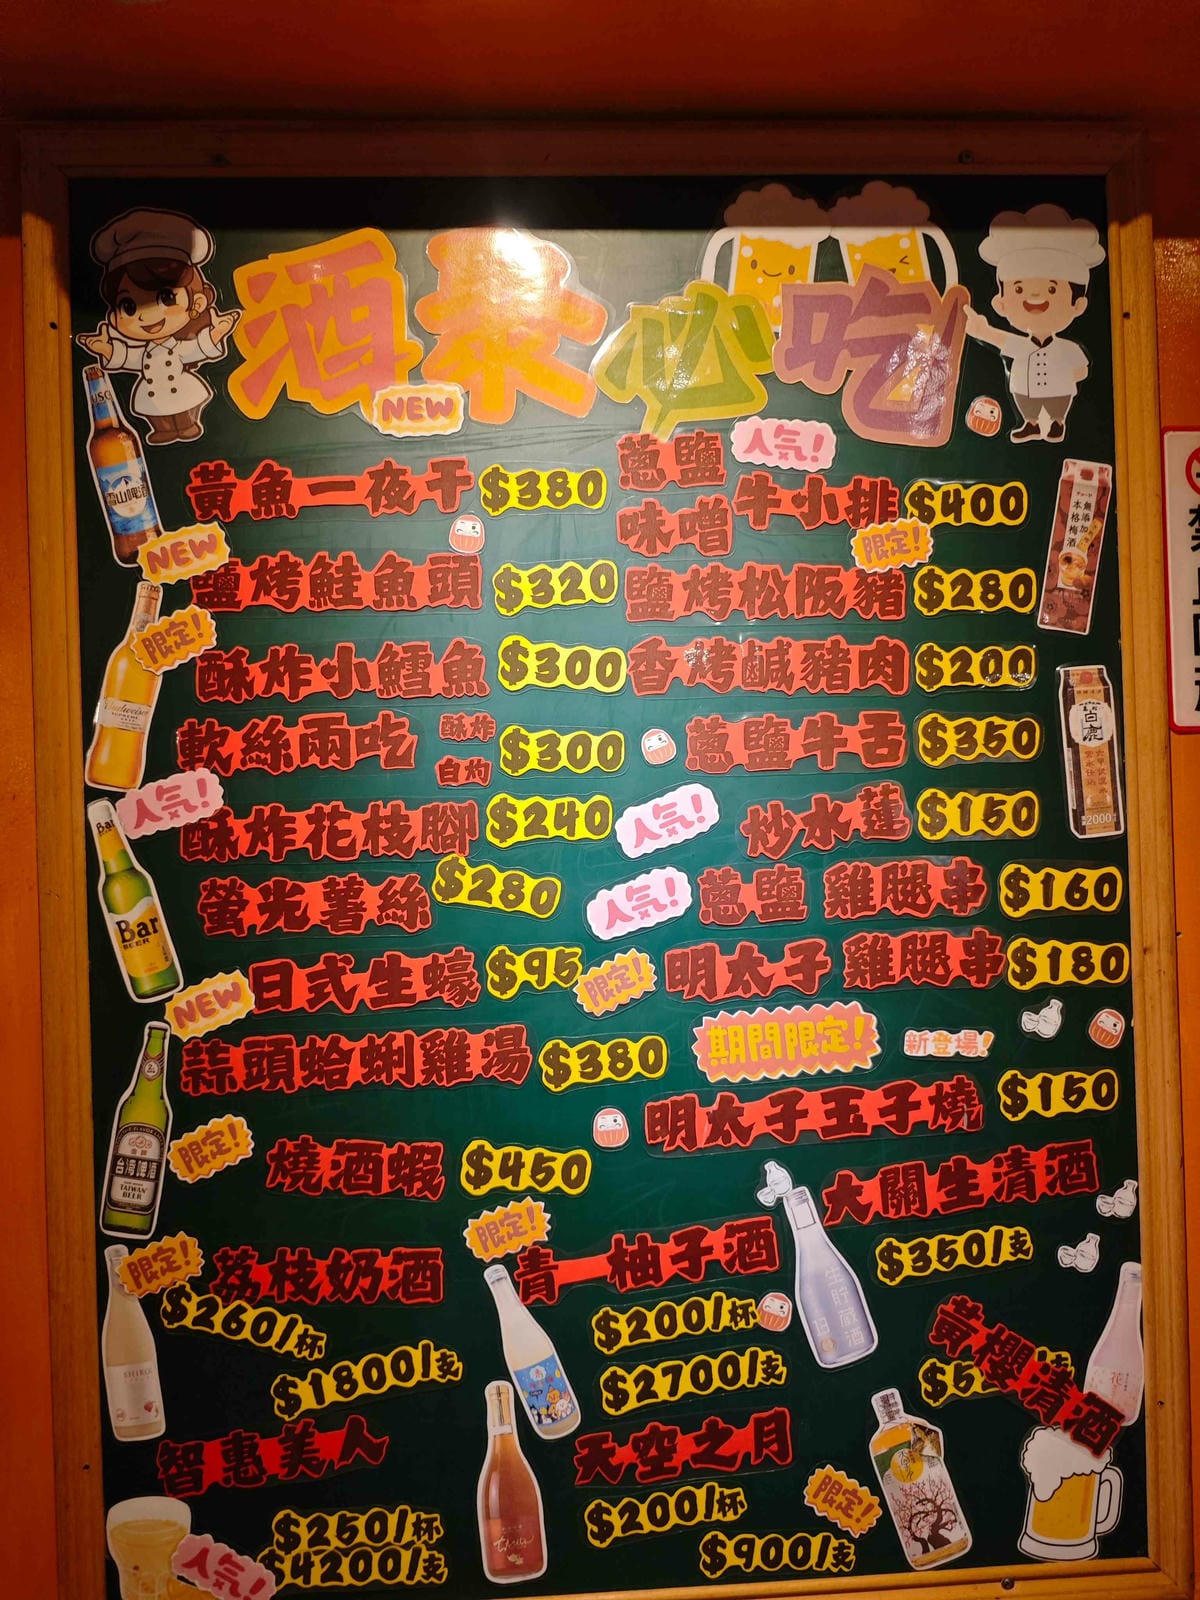 酒泰必吃
NEW
黃魚一夜干 $380
NEW
鹽烤鮭魚頭 $320
限定!
酥炸小鱈魚 $300
軟絲兩吃 酥炸 白灼 $300
人気!
酥炸花枝腳 $240
螢光薯絲 $280
日式生蠔 $95
NEW
蒜頭蛤蜊雞湯 $380
限定!
燒酒蝦 $450
蔥鹽 味噌 牛小排 $400
人気!
限定!
鹽烤松阪豬 $280
香烤鹹豬肉 $200
蔥鹽牛舌 $350
人気!
炒水蓮 $150
人気!
蔥鹽 雞腿串 $160
限定!
明太子 雞腿串 $180
期間限定!
新登場!
明太子玉子燒 $150
大關生清酒
$350/支
限定!
荔枝奶酒
$260/杯
$1800/支
限定!
青一柚子酒
$200/杯
$2700/支
黃櫻清酒
智惠美人
$250/杯
$4200/支
人気!
天空之月
$200/杯
$900/支
限定!
雪山啤酒
Budweiser
SUPREME
Bar
BEER
台灣啤酒
TAIWAN
BEER
SHIROI
生貯蔵酒
無添加
本格梅酒
白鹿
2000